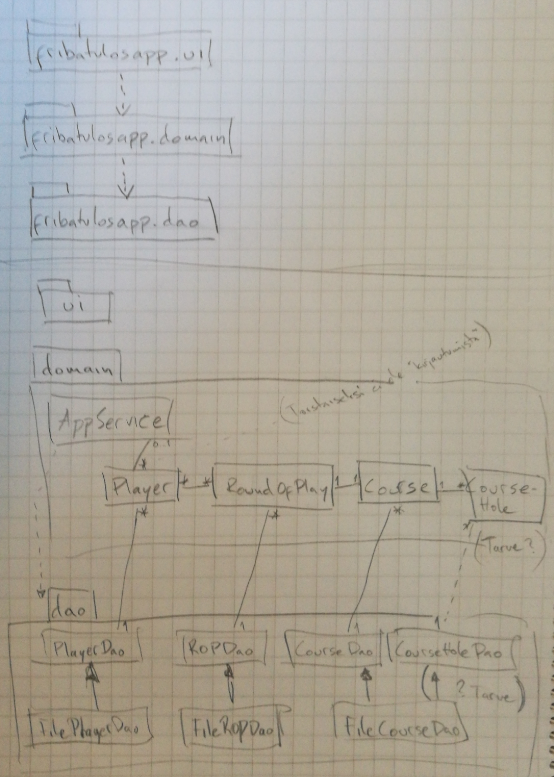 fribatulosapp.ui
fribatulosapp.domain
fribatulosapp.dao
ui
domain
(Toistaiseksi ei ole "kirjautumista")
AppService
0..1
*
Player * * RoundOfPlay 1 1 Course 1 * Course-
Hole
* * * *
(Tarve?)
dao
1 1 1 1
PlayerDao ROPDao CourseDao CourseHoleDao
( ? Tarve)
FilePlayerDao FileROPDao FileCourseDao